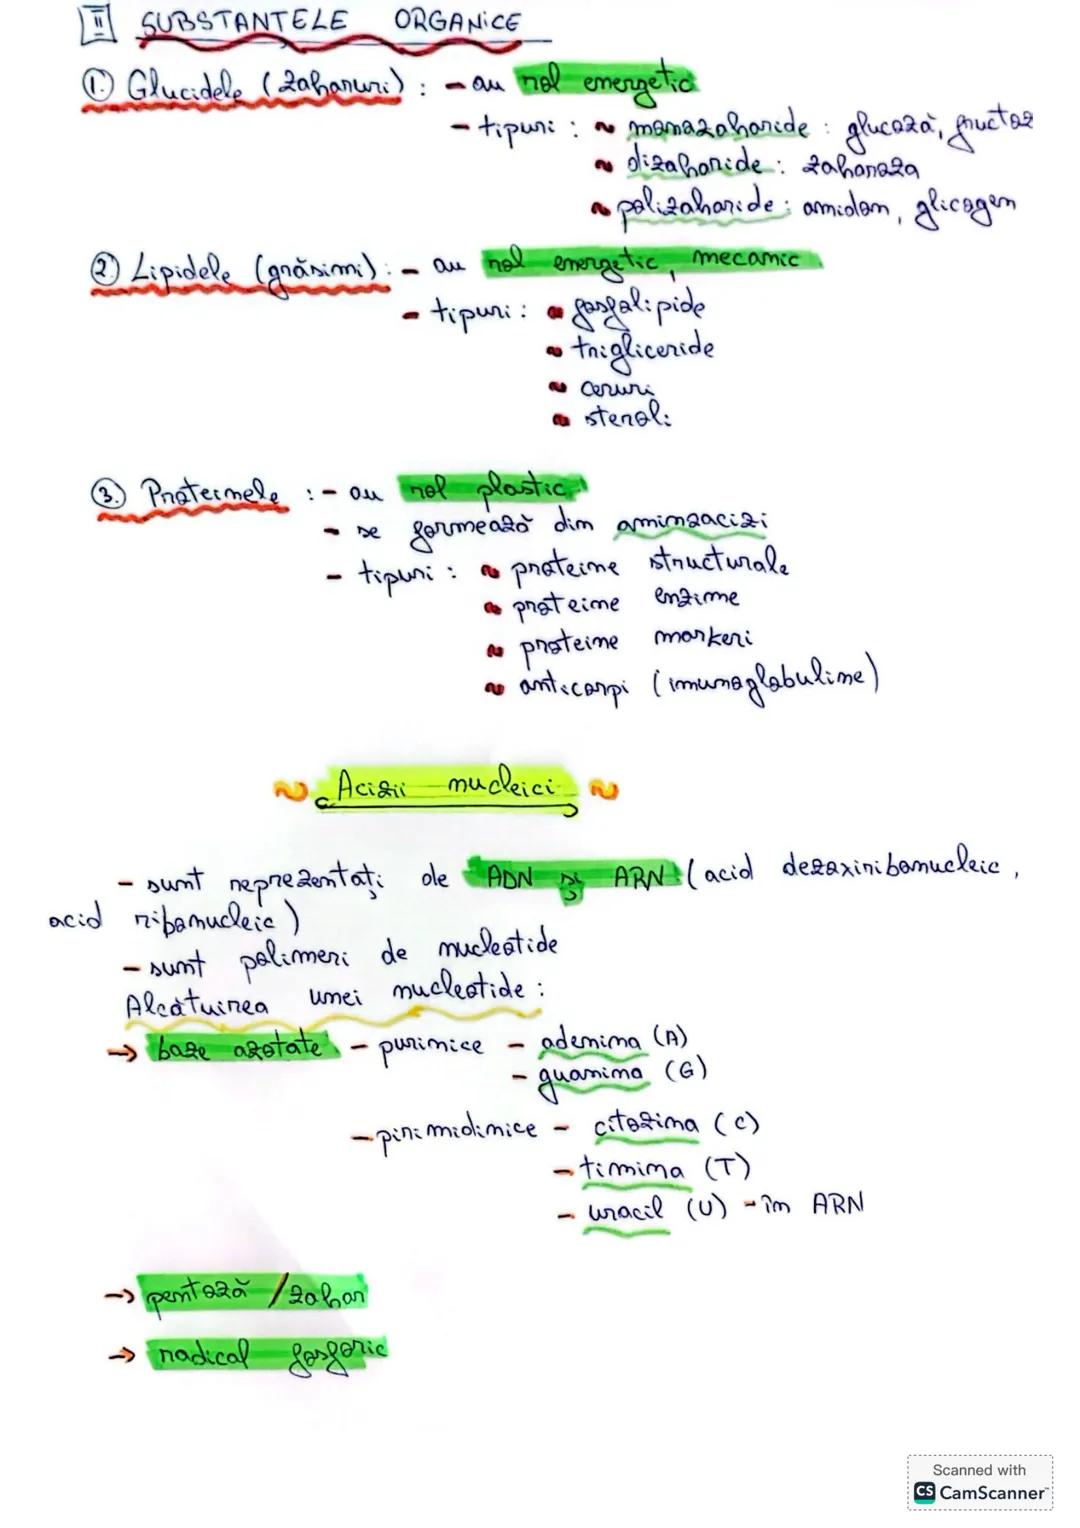 II SUBSTANTELE ORGANICE
1. Glucidele (zaharuri) : - au rol energetic
- tipuri : ~ monozaharide : glucoză, fructoz
~ dizaharide : zaharoza
~ polizaharide : amidon, glicogen
2. Lipidele (grăsimi) : - au rol energetic, mecanic
- tipuri : ~ fosfolipide
~ trigliceride
~ ceruri
~ steroli
3. Proteinele : - au rol plastic
- se formează din aminoacizi
- tipuri : ~ proteine structurale
~ proteine enzime
~ proteine markeri
~ anticorpi (imunoglobuline)
~ Acizii nucleici ~
- sunt reprezentați de ADN și ARN (acid dezoxiribonucleic,
acid ribonucleic)
- sunt polimeri de nucleotide
Alcătuirea unei nucleotide :
→ baze azotate - purinice - adenina (A)
- guanina (G)
- pirimidinice - citozina (C)
- timina (T)
- uracil (U) - în ARN
→ pentoză / zahar
→ radical fosforic
Scanned with
CS CamScanner